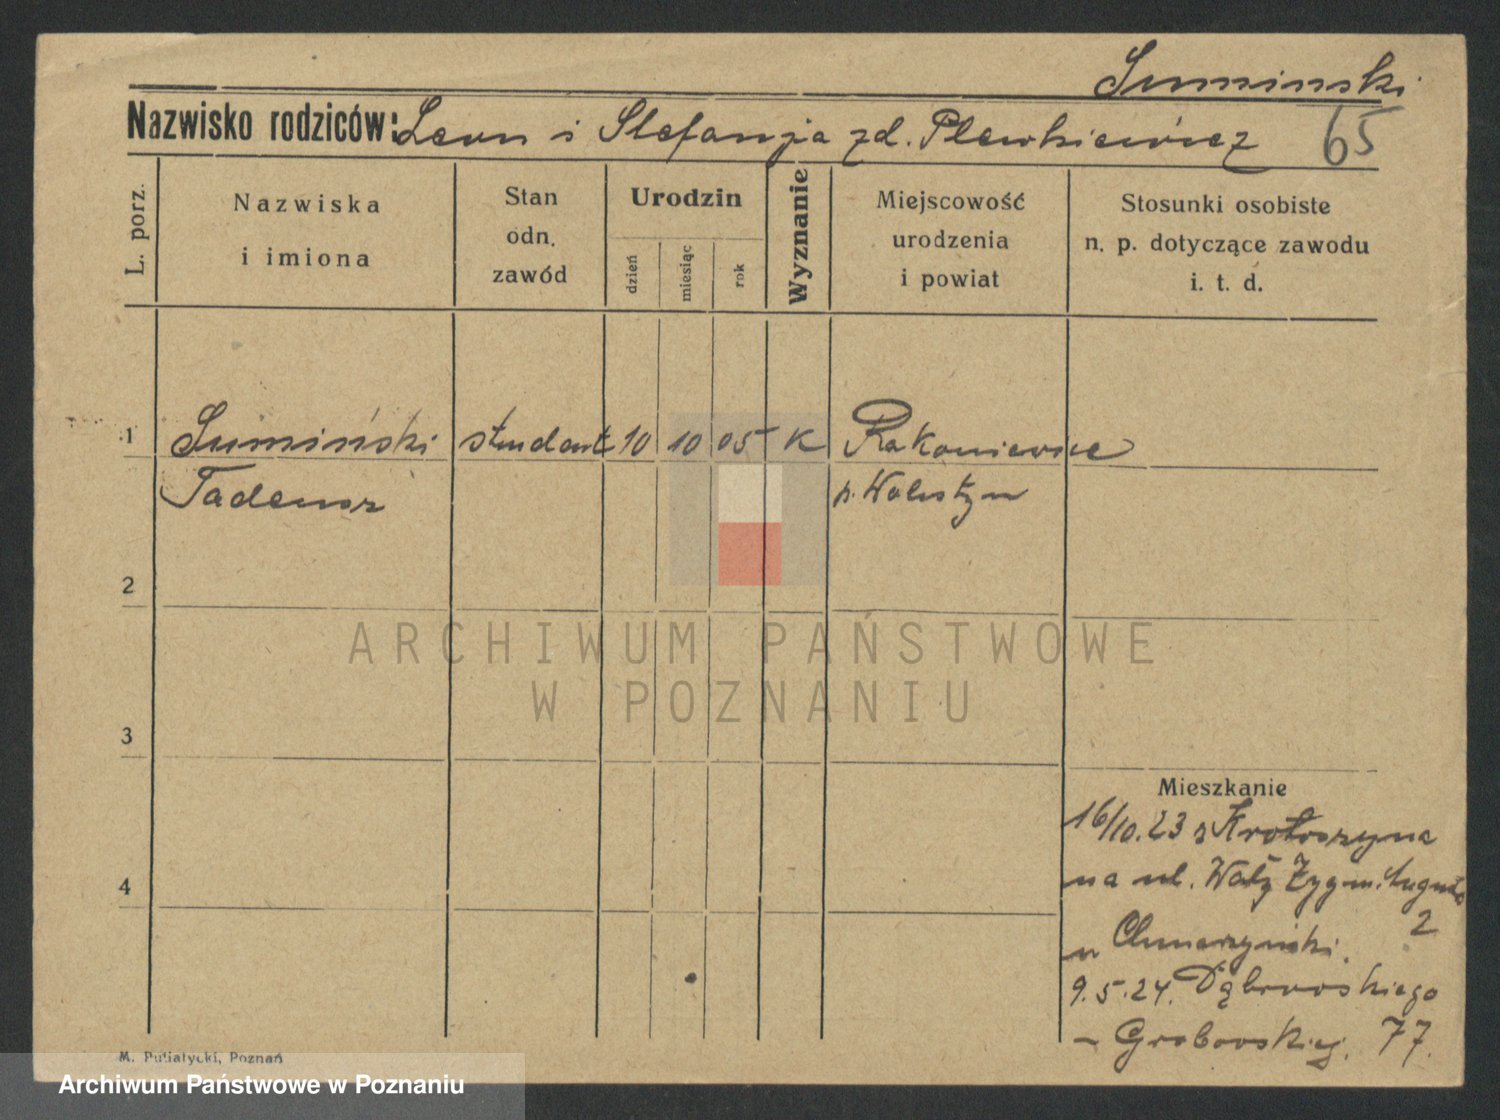 Suminski
Nazwisko rodziców: Leon i Stefanja zd. Plewkiewicz 65
L. porz.
Nazwiska
i imiona
Stan
odn.
zawód
Urodzin
dzień
miesiąc
rok
Wyznanie
Miejscowość
urodzenia
i powiat
Stosunki osobiste
n. p. dotyczące zawodu
i. t. d.
1 Sumiński student 10 10 05 K Rakoniewice
Tadeusz p. Wolsztyn
2
ARCHIWUM PAŃSTWOWE
W POZNANIU
3
Mieszkanie
16/10.23 z Krotoszyna
4
na ul. Wały Zygm. Augusta
2
u
9.5.24. Dąbrowskiego
- Grobowskiej. 77.
M. Putiatycki, Poznań
Archiwum Państwowe w Poznaniu